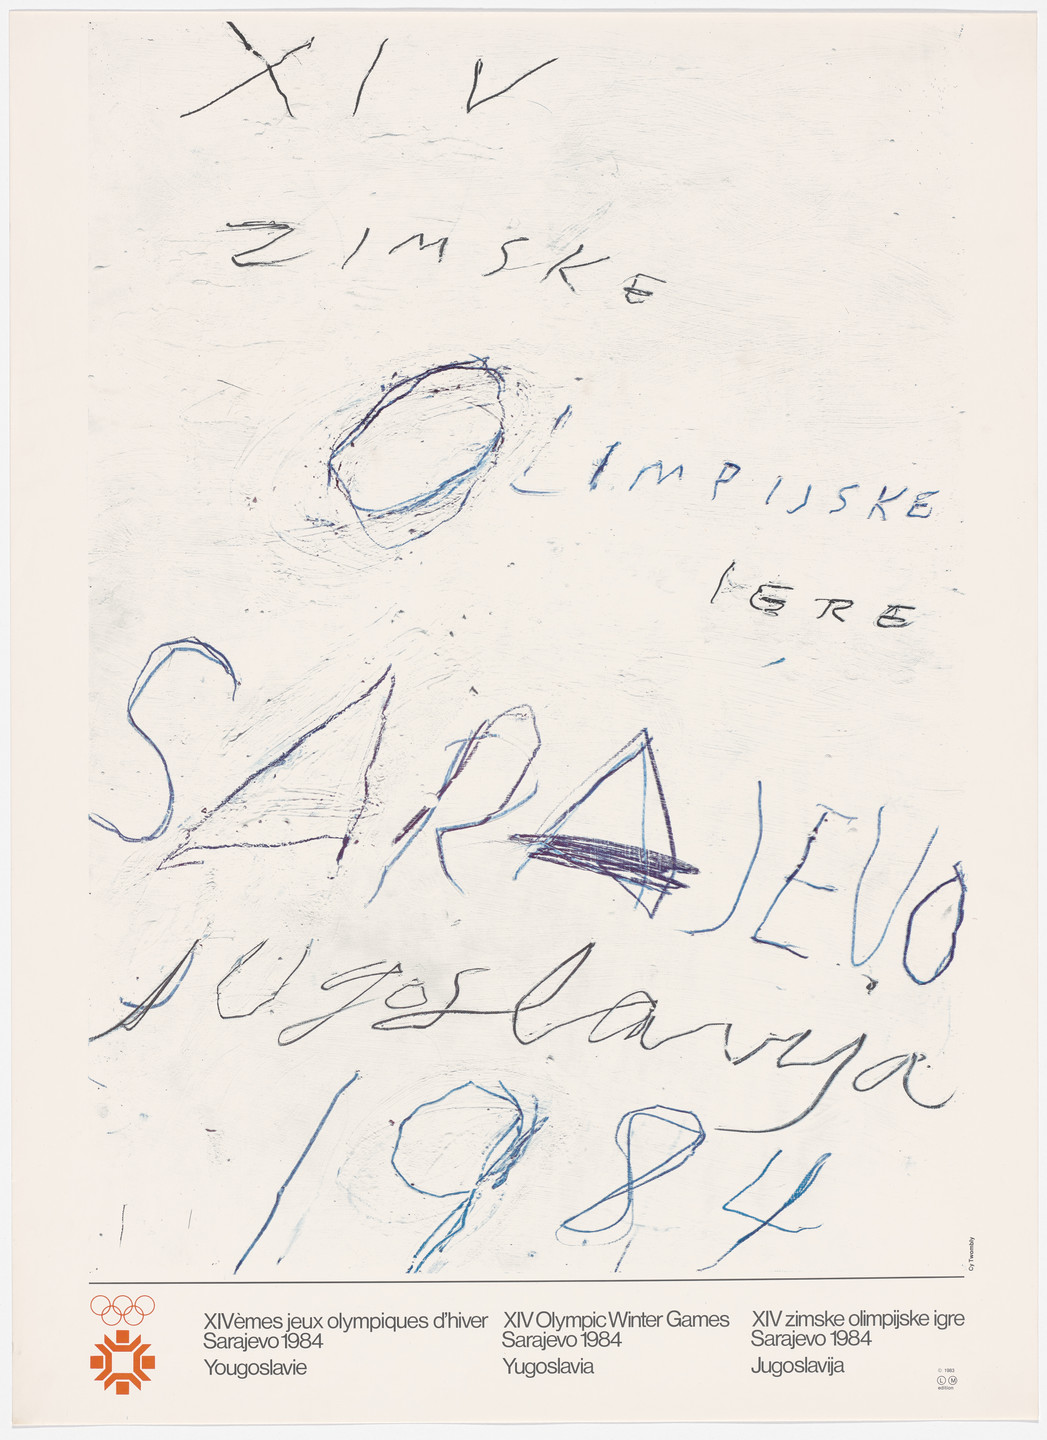 XIV
ZIMSKE
OLIMPIJSKE
IGRE
SARAJEVO
Jugoslavija
1984
Cy Twombly
XIVèmes jeux olympiques d'hiver
Sarajevo 1984
Yougoslavie
XIV Olympic Winter Games
Sarajevo 1984
Yugoslavia
XIV zimske olimpijske igre
Sarajevo 1984
Jugoslavija
© 1983
L M
edition